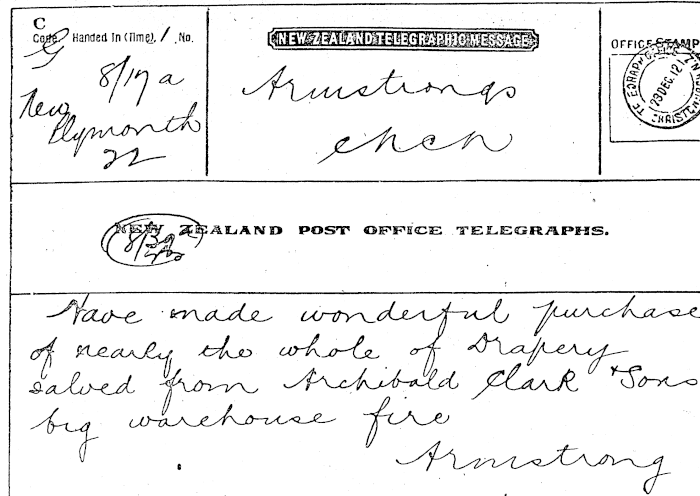 C
Code. Handed In (Time). 1 No.
G
8/17 a
New
Plymouth
22
NEW ZEALAND TELEGRAPHIC MESSAGE
Armstrongs
chch
OFFICE STAMP
23 DEC 12
NEW ZEALAND POST OFFICE TELEGRAPHS.
Have made wonderful purchase
of nearly the whole of Drapery
salved from Archibald Clark & Sons
big warehouse fire
Armstrong